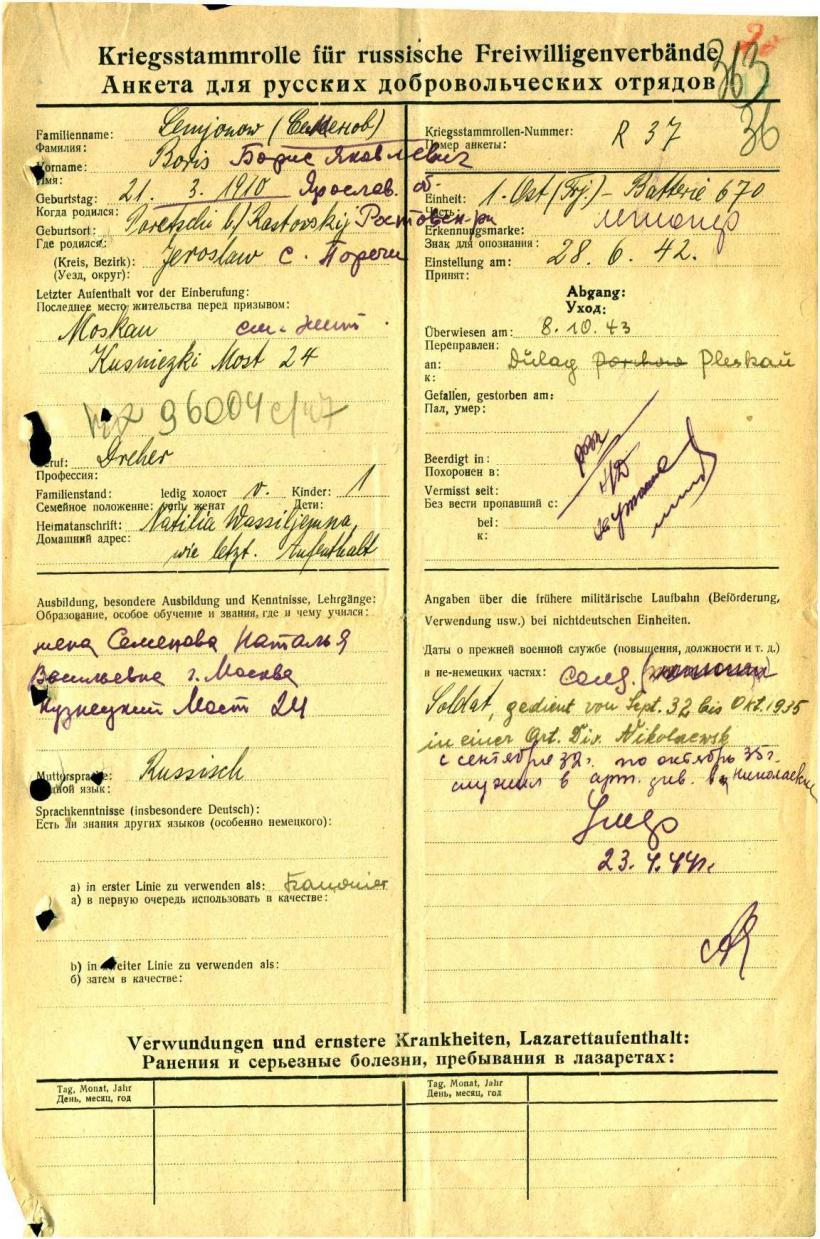 Kriegsstammrolle für russische Freiwilligenverbände
Анкета для русских добровольческих отрядов
313
36
Familienname: Semjonow (Семенов)
Фамилия:
Vorname: Boris Борис Яковлевич
Имя:
Geburtstag: 21. 3. 1910 Ярослав. об.
Когда родился:
Geburtsort: Poretschi b/ Rastovskij Ростовск. р-н
Где родился:
(Kreis, Bezirk): Jeroslaw с. Поречи
(Уезд, округ):
Letzter Aufenthalt vor der Einberufung:
Последнее место жительства перед призывом:
Moskau
Kusniezki Most 24
96004 c/47
Beruf: Dreher
Профессия:
Familienstand: ledig холост v. Kinder: 1
Семейное положение: verh. женат Дети:
Heimatanschrift: Natilia Wassiljewna
Домашний адрес: wie letzt. Aufenthalt
Ausbildung, besondere Ausbildung und Kenntnisse, Lehrgänge:
Образование, особое обучение и звания, где и чему учился:
жена Семенова Наталья
Васильевна г. Москва
Кузнецкий Мост 24
Muttersprache: Russisch
Родной язык:
Sprachkenntnisse (insbesondere Deutsch):
Есть ли знания других языков (особенно немецкого):
a) in erster Linie zu verwenden als: Kanonier
а) в первую очередь использовать в качестве:
b) in zweiter Linie zu verwenden als:
б) затем в качестве:
Kriegsstammrollen-Nummer: R 37
Номер анкеты:
Einheit: 1. Ost (Frj.) - Batterie 670
Часть:
Erkennungsmarke:
Знак для опознания:
Einstellung am: 28. 6. 42.
Принят:
Abgang:
Уход:
Überwiesen am: 8. 10. 43
Переправлен:
an: Dulag Porchow Pleskau
к:
Gefallen, gestorben am:
Пал, умер:
Beerdigt in:
Похоронен в:
Vermisst seit:
Без вести пропавший с:
bei:
к:
Angaben über die frühere militärische Laufbahn (Beförderung,
Verwendung usw.) bei nichtdeutschen Einheiten.
Даты о прежней военной службе (повышения, должности и т. д.)
в не-немецких частях: солд.
Soldat, gedient von Sept. 32 bis Okt. 1935
in einer Art. Div. Nikolaewsk
с сентября 32г. по октябрь 35г.
служил в арт. див. в Николаевске
23. 4. 44г.
Verwundungen und ernstere Krankheiten, Lazarettaufenthalt:
Ранения и серьезные болезни, пребывания в лазаретах:
Tag, Monat, Jahr
День, месяц, год
Tag, Monat, Jahr
День, месяц, год